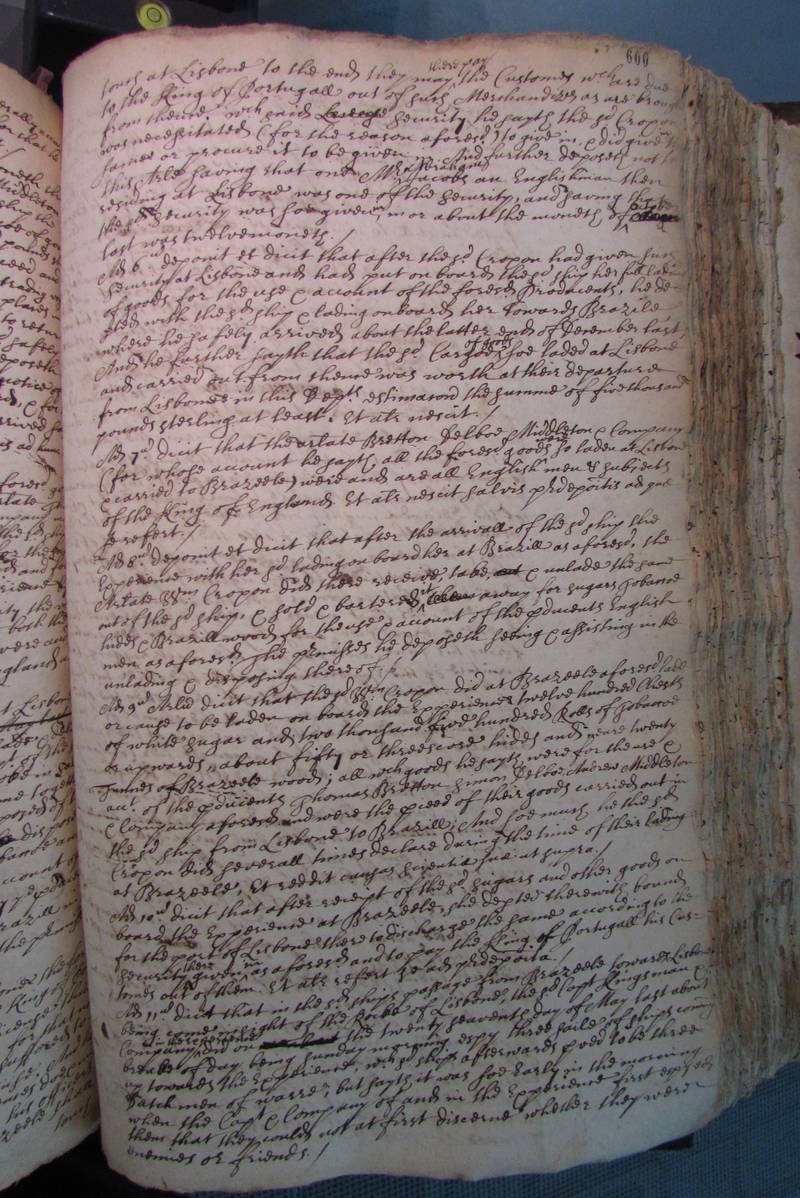 600
touch at Lisbone to the end they may there pay the Customes wch are due
to the King of Portugall out of such Merchandizes as are brought
from thence. wch said security he sayth the sd Cropon
was necessitated (for the reason aforesd) to give &c did give the
same or procure it to be given And further deposeth not to
this Arle saving that one Mr Abraham Jacobs an Englishman then
residing at Lisbone was one of the security, and saving that
the sd security was soe given in or about the moneth of October
last was twelvemoneth /
Ad 6um deponit et dicit that after the sd Cropon had given such
security at Lisbone and had put on board the sd ship her full lading
of goods for the use & account of the foresd Producents, he
with the sd ship & lading on board her towards Brazile
where he safely arrived about the latter end of December last
And he further sayth that the sd Cargoe of goods soe laded at Lisbone
and carried out from thence was worth at their departure
from Lisbone in this Depts estimacon the summe of five thousand
pounds sterling at least. Et alr nescit /
Ad 7um dicit that the arlate Bretton Delboe Middleton & Company
(for whose account he sayth all the foresd goods were so laden at Lisbon
& carried to Brazeele) were and are all English men & subjects
of the King of England. Et alr nescit salvis prdepoitis ad que
se refert /
Ad 8um deponit et dicit that after the arrivall of the sd ship the
Experience with her sd lading on board her at Brazill as aforesd, the
Arlate Wm Cropon did there receive, take, & unlade the same
out of the sd ship, & sold & bartered it away for sugars Tobacoe
hides & Brazill wood for the use & account of the pducents English
men as aforesd. The premisses he deposeth seeing & assisting in the
unlading & disposing thereof /
Ad 9um Arlum dicit that the sd Wm Cropon did at Brazeele aforesd lade
or cause to be laden on board the Experience twelve hundred Chests
of white sugar and two thousand five hundred Rolls of Tobacoe
or upwards, about fifty or threescore hides and neere twenty
Tunnes of Brazeele wood; all wch goods he sayth were for the use &
acct. of the pducents Thomas Bretton Simon Delboe Andrew Middleton
& Company aforesd and were the pceed of their goods carried out in
the sd ship from Lisbone to Brazill; And soe much he the sd
Cropon did severall times declare during the time of their lading
at Brazeele, Et reddit causas scientiae suae ut supra /
Ad 10um dicit that after receipt of the sd sugars and other goods on
board the Experience at Brazeele, she depted therewith bound
for the port of Lisbone there to discharge the same according to the
security there given as aforesd and to pay the King of Portugall his Cus=
tomes out of them. Et alr refert se ad prdeposita /
Ad 11um dicit that in the sd ships passage from Brazeele towards Lisbone
being come in sight of the Rocke of Lisbone, the sd Capt Kingsman &
Company in the Experience on the twenty seaventh day of May last about
breake of day being sunday morning espy three saile of ships coming
up towards the Experience, wch sd ships afterwards pved to be three
Dutch men of warre, but sayth it was soe early in the morning
when the Capt & Company of and in the Experience first espyed
them that they could not at first discerne whether they were
enemies or friends /